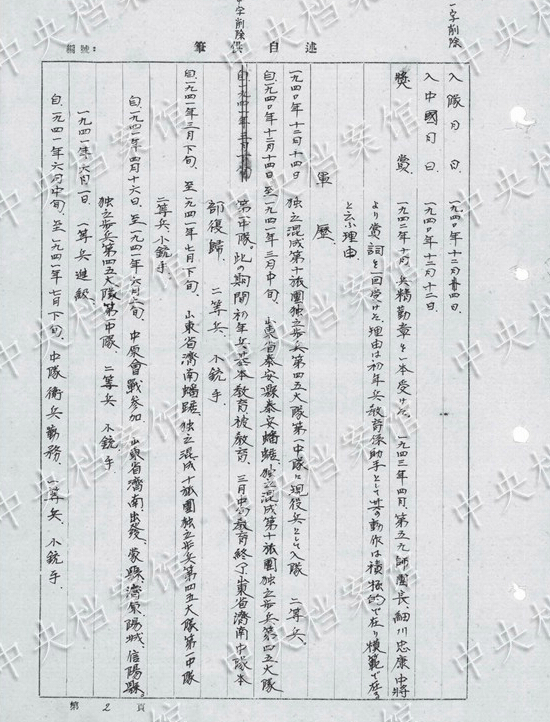 一字削除
十字削除
編號：
筆供自述
入隊月日、 一九四〇年十二月十四日、
入中國月日、 一九四〇年十二月十二日、
奬賞、 一九四二年十月、兵精勤章を一本受けた。 一九四三年四月、第五九師團長、細川忠康中將
より賞詞を一回受けた 理由は初年兵教育係助手として 其の動作は積極的で在り模範で在る
と云ふ理由、
軍歷、
一九四〇年十二月十四日 独立混成第十旅團独立歩兵第四五大隊第一中隊に現役兵として入隊 二等兵、
自一九四〇年十二月十四日 至一九四一年三月中旬、 山東省泰安縣泰安蟠踞、独立混成第十旅團独立歩兵第四五大隊
第一中隊、此の期間初年兵基本教育被教育、三月中旬教育終了、山東省濟南中隊本
部復歸、 二等兵、 小銃手、
自一九四一年三月下旬、至一九四一年七月下旬、 山東省濟南蟠踞、独立混成十旅團独立歩兵第四五大隊第一中隊
二等兵、小銃手、
自、一九四一年四月十六日、至一九四一年六月六旬、 中原會戰参加、山東省濟南、出發、 濟
独立歩兵第四五大隊第一中隊、 二等兵 小銃手、
一九四一年、六月一日、一等兵進級、
自、一九四一年六月中旬、至一九四一年七月下旬、中隊衛兵勤務、一等兵、小銃手、
第 2 頁
中央档案馆